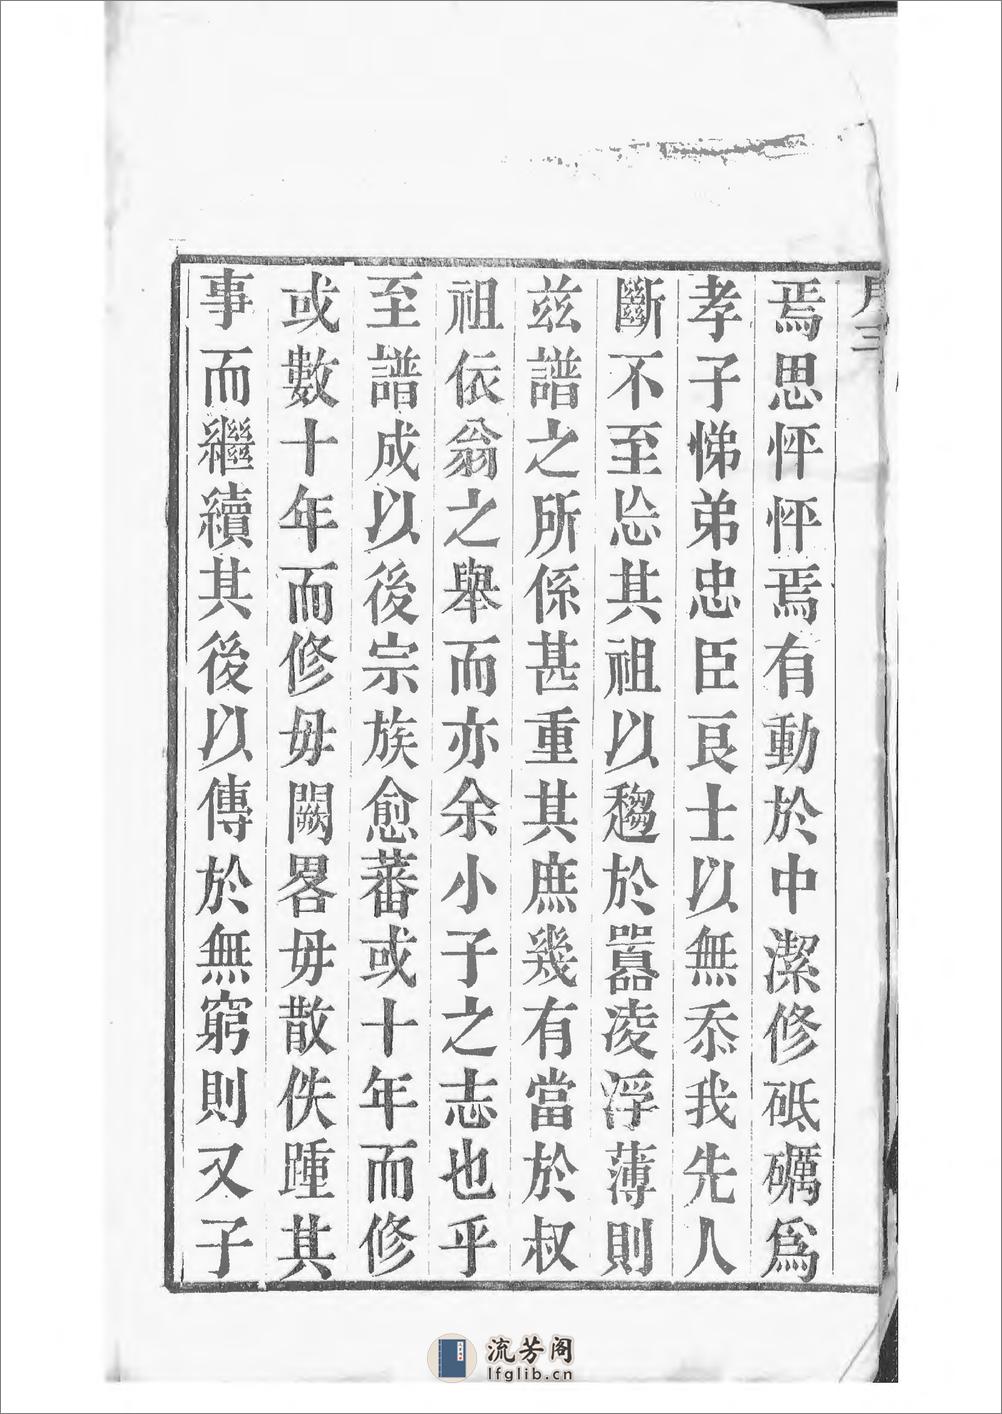 焉思怦怦焉有動於中潔修砥礪爲
孝子悌弟忠臣良士以無忝我先人
斷不至忘其祖以趨於囂凌浮薄則
兹譜之所係甚重其庶幾有當於叔
祖依翁之舉而亦余小子之志也乎
至譜成以後宗族愈蕃或十年而修
或數十年而修毋闕畧毋散佚踵其
事而繼續其後以傳於無窮則又子
流芳阁
lfglib.cn